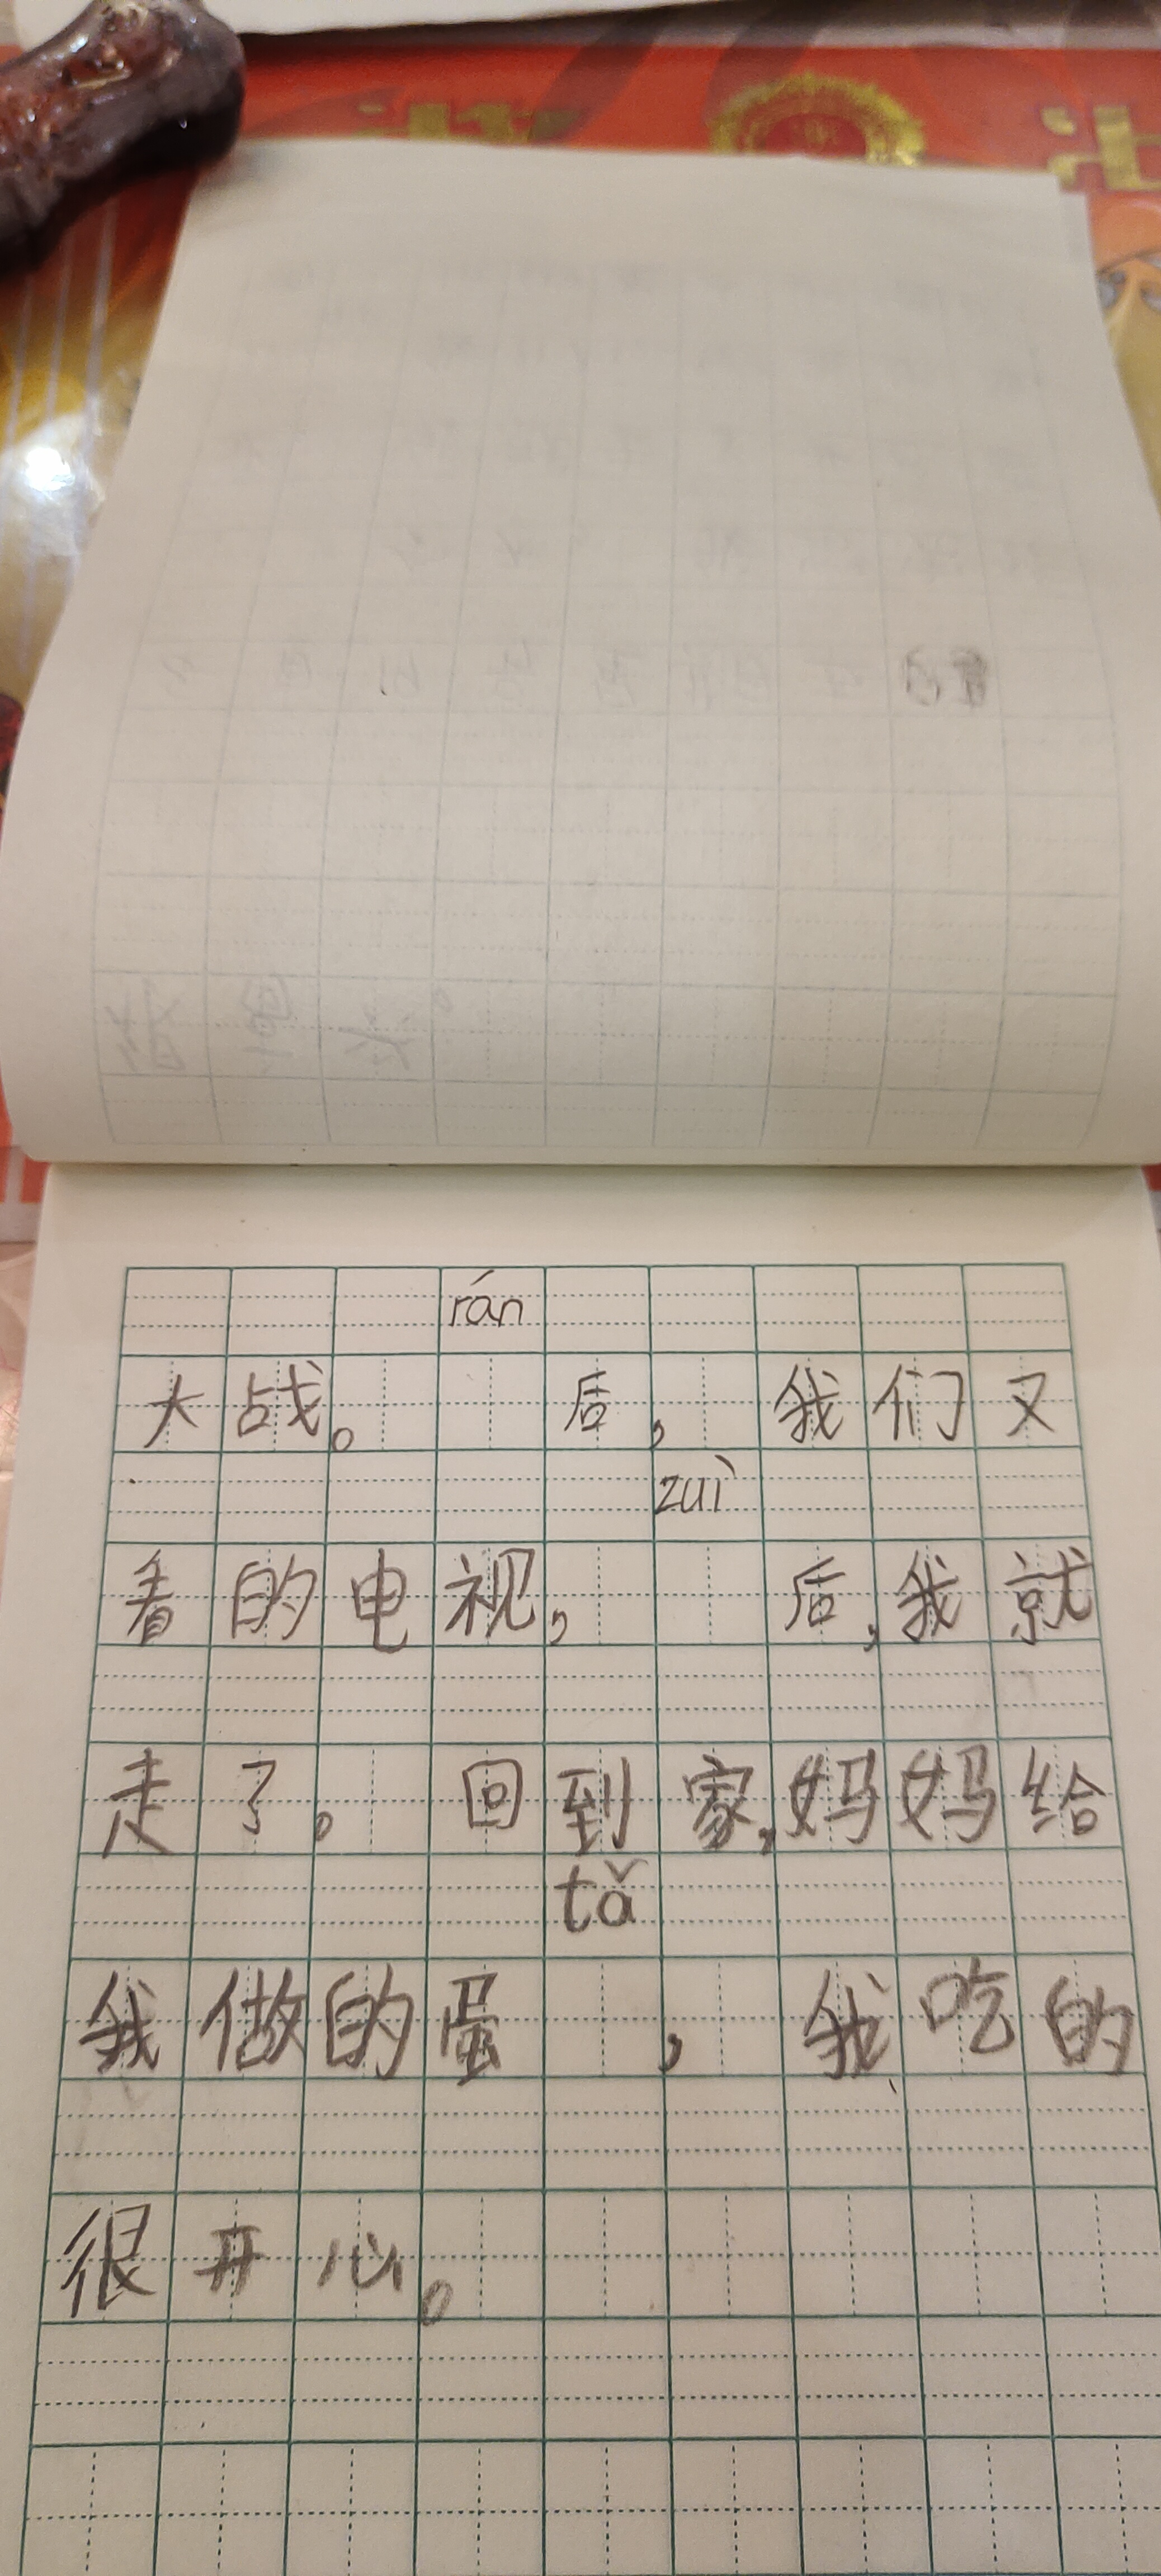 rán
大战。 后，我们又
zuì
看的电视， 后，我就
走了。 回到家，妈妈给
tǎ
我做的蛋 ，我吃的
很开心。